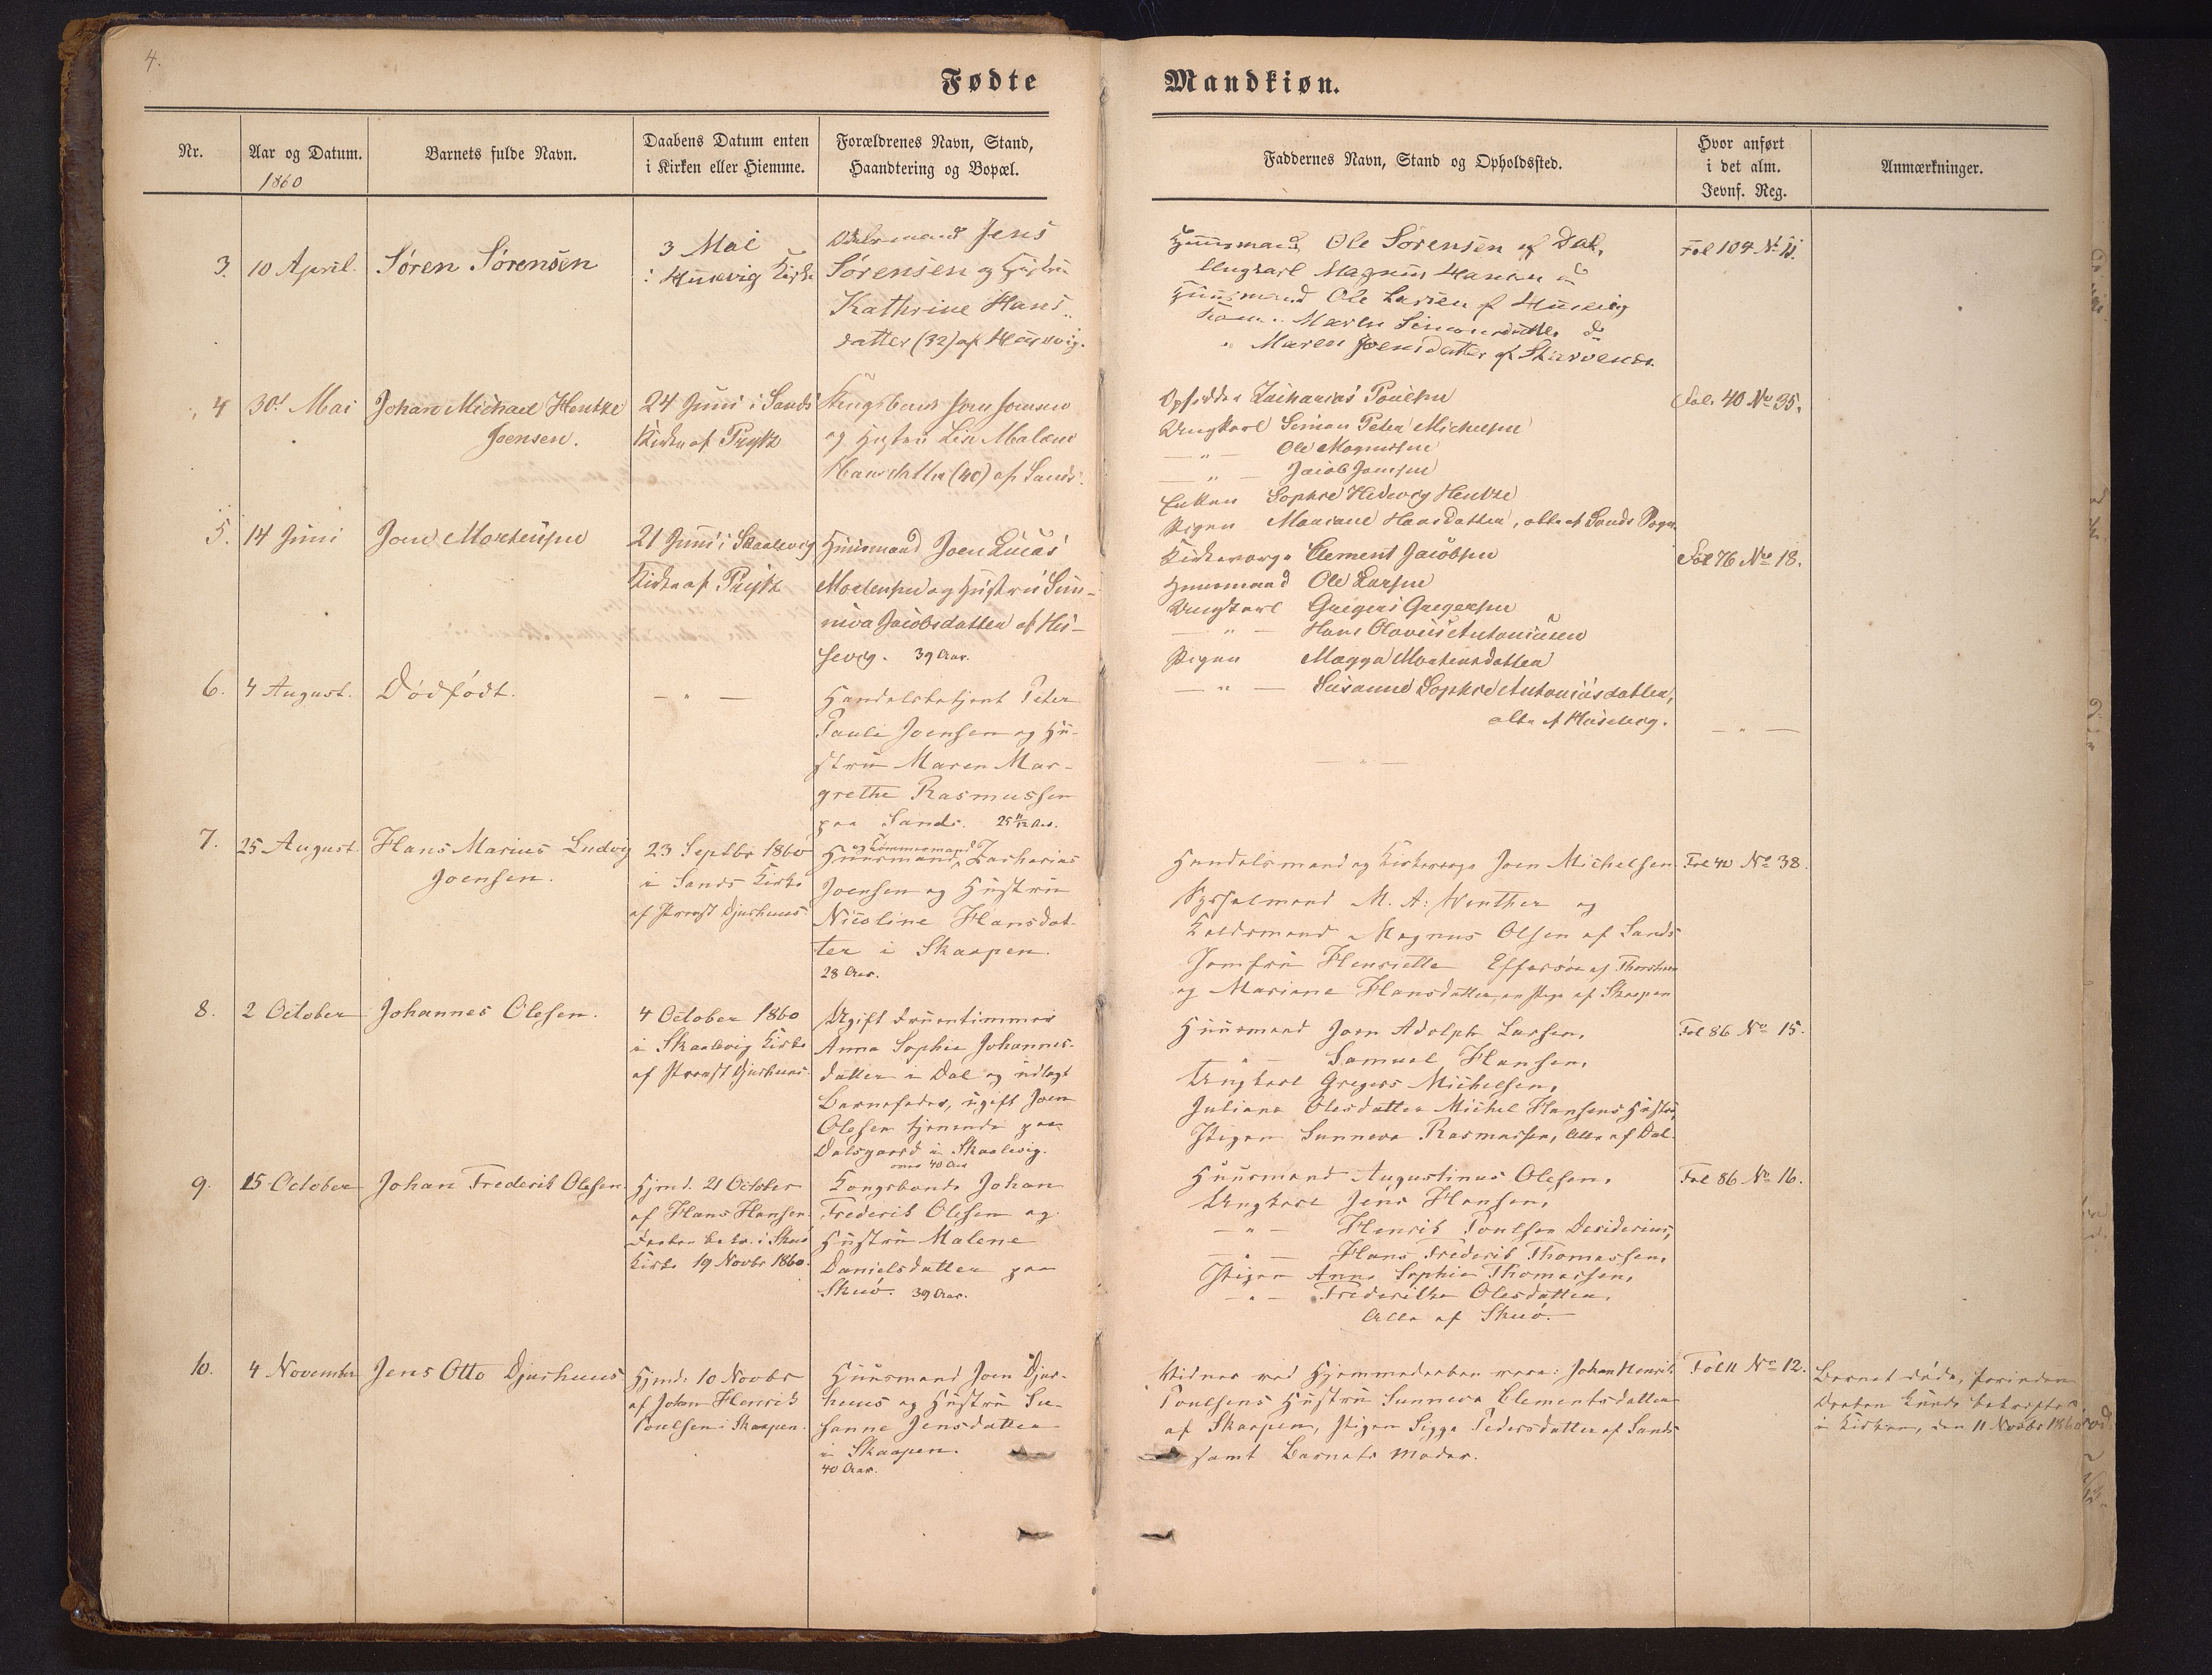 4.
Fødte
Mandkiøn.
Nr.
Aar og Datum.
1860
Barnets fulde Navn.
Daabens Datum enten
i Kirken eller Hiemme.
Forældrenes Navn, Stand,
Haandtering og Bopæl.
Faddernes Navn, Stand og Opholdssted.
Hvor anført
i det alm.
Jevnf. Reg.
Anmærkninger.
3.
10 April.
Søren Sørensen
3 Mai
i Husevig Kirke
Jens
Sørensen og Hustru
Kathrine Hans-
datter (32) af Husevig.
Huusmand Ole Sørensen af Dal,
Ungkarl Magnus Hansen
Huusmand Ole Larsen af Husevig
Maren Simonsdatter do
" Maren Joensdatter af
Fol 104 No 11.
4
30t Mai
Johan Michael Hentze
Joensen.
24 Juni i Sands
Kirke af
Kongsbonde Joen Joensen
og Hustru Lisa Malene
Hansdatter (40) af Sand.
Opsidder Zacharias Poulsen
Ungkarl Simon Peter Michelsen
— " — Ole Magnussen
— " — Jacob Joensen
Enken Sophie Hedevig Hentze
Pigen Mariane Hansdatter, alle af Sands Sogn.
Fol. 40 No 35.
5.
14 Juni
Joen Mortensen
21 Juni i Skaalevig
Kirke af
Huusmand Joen Lucas
Mortensen og Hustru Sun-
niva Jacobsdatter af Hu-
sevig. 39 Aar.
Kirkeværge Clement Jacobsen
Huusmand Ole Larsen
Ungkarl Gregers Gregersen
— " — Hans Olavus Antoniusen
Pigen Magga Mortensdatter
— " — Susanne Sophie Antoniusdatter,
alle af Husevig.
Fol 76 No 18.
6.
4 August.
Dødfødt.
— " —
Handelsbetjent Peter
Pauli Joensen og Hu-
stru Maren Mar-
grethe Rasmussen
paa Sand. 25 11/12 Aar.
— " —
— " —
7.
25 August.
Hans Marius Ludvig
Joensen.
23 Septbr 1860
i Sands Kirke
af Provst Djurhuus.
og Tømmermand
Huusmand Zacharias
Joensen og Hustru
Nicoline Hansdat-
ter i Skaapen.
28 Aar.
Handelsmand og Kirkeværge Joen Michelsen
Sysselmand M. A. Winther og
Magnus Olsen af Sand
Jomfru Henriette Effersøe af Thorshavn
og Mariane Hansdatter, af Skaapen
Fol 40 No 38.
8.
2 October
Johannes Olesen.
4 October 1860
i Skaalevig Kirke
af Provst Djurhuus.
Ugift Fruentimmer
Anna Sophie Johannes-
datter i Dal og udlagt
Barnefader, ugift Joen
Olesen tjenende paa
Dalsgaard i Skaalevig.
over 40 Aar
Huusmand Joen Adolph Larsen,
— " — Samuel Hansen,
Ungkarl Gregers Michelsen,
Juliane Olesdatter Michel Hansens Hustru,
Pigen Sunneva Rasmussen, Alle af Dal.
Fol 86 No 15.
9.
15 October
Johan Frederik Olesen.
Hjmd. 21 October
af Hans Hansen.
Daaben bekr. i Skuø
Kirke 19 Novbr 1860.
Kongsbonde Johan
Frederik Olesen og
Hustru Malene
Danielsdatter paa
Skuø. 39 Aar.
Huusmand Augustinus Olesen,
Ungkarl Jens Hansen,
— " — Henrik Poulsen Desiderius,
— " — Hans Frederik Thomassen,
Pigen Anna Sophie Thomassen,
— " — Frederikke Olesdatter,
Alle af Skuø.
Fol 86 No 16.
10.
4 November
Jens Otto Djurhuus
Hjmd. 10 Novbr
af Johan Henrik
Poulsen i Skaapen.
Huusmand Joen Djur-
huus og Hustru Su-
sanne Jensdatter
i Skaapen.
40 Aar.
Vidner ved Hjemmedaaben vare: Johan Henrik
Poulsens Hustru Sunneva Clementsdatter
af Skaapen, Pigen Sigga Pedersdatter af Sand
samt Barnets Moder.
Fol 11 No 12.
Barnet døde, forinden
Daaben kunde bekræftes
i Kirken, den 11 Novbr 1860